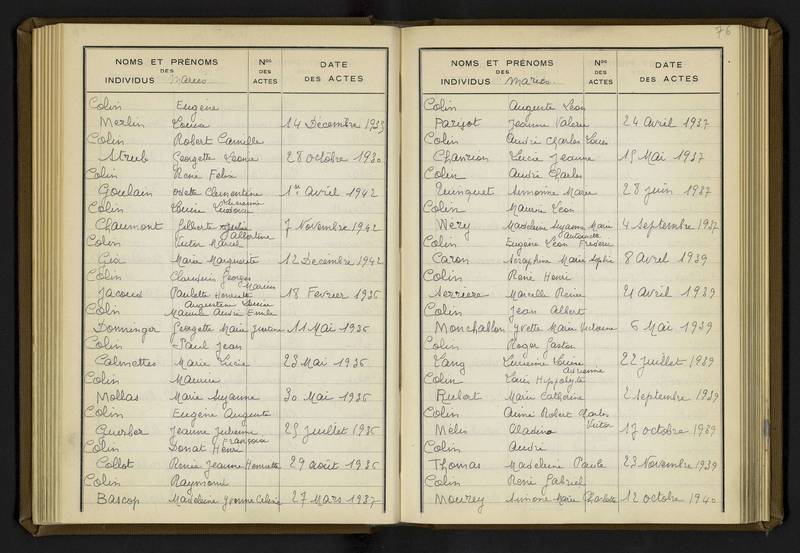 NOMS ET PRÉNOMS DES INDIVIDUS Mariés
Nos DES ACTES
DATE DES ACTES
Colin Eugène
Merlin Louisa 14 Décembre 1933
Colin Robert Camille
Strub Georgette Léonie 28 octobre 1930
Colin René Félix
Goulain Odette Clementine 1er Avril 1942
Colin Lucien
Chaumont Gilberte Albertine 7 Novembre 1942
Colin Victor Marcel
Gix Marie Marguerite 12 Décembre 1942
Colin Claudius Georges Marius
Jacoud Paulette Henriette 18 Fevrier 1936
Augustin Lucien
Colin Maurice André Emile
Donninger Georgette Marie Justine 11 Mai 1936
Colin Paul Jean
Calmettes Marie Lucie 23 Mai 1936
Colin Maurice
Mollas Marie Suzanne 30 Mai 1936
Colin Eugène Auguste
Guerber Jeanne Julienne Françoise 25 Juillet 1936
Colin Donat Henri
Collot Renée Jeanne Henriette 29 août 1936
Colin Raymond
Bascop Madeleine Yvonne 27 Mars 1937
76
NOMS ET PRÉNOMS DES INDIVIDUS Mariés
Nos DES ACTES
DATE DES ACTES
Colin Auguste Léon
Parisot Jeanne Valérie 24 Avril 1937
Colin André Charles Louis
Chanrion Lucie Jeanne 15 Mai 1937
Colin André Charles
Quinquet Simonne Marie 28 juin 1937
Colin Maurice Léon
Wéry Madeleine Suzanne Marie Antoinette 4 Septembre 1937
Colin Eugène Léon Frédéric
Caron Séraphine Marie Sophie 8 Avril 1939
Colin René Henri
Serrière Marcelle Renée 21 Avril 1939
Colin Jean Albert
Monchablon Yvette Marie Victorine 6 Mai 1939
Colin Roger Gaston
Lang Lucienne Louise Adrienne 22 Juillet 1939
Colin Louis Hippolyte
Rubert Marie Catherine 2 Septembre 1939
Colin Aimé Robert Charles Victor
Mélis Aladina 17 octobre 1939
Colin André
Thomas Madeleine Paule 23 Novembre 1939
Colin René Gabriel
Mourey Simone Marie Charlotte 12 octobre 1940